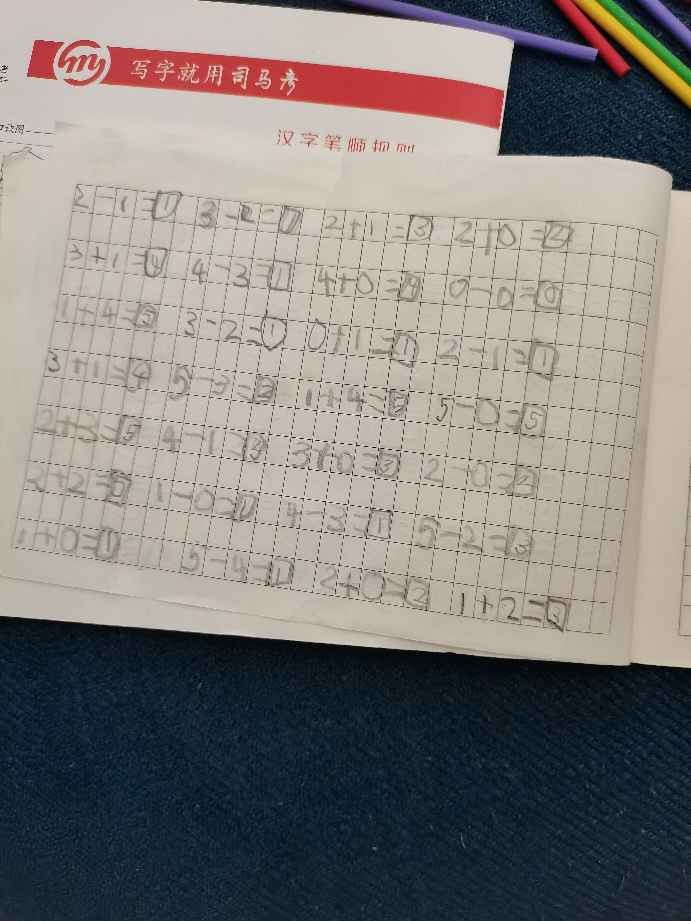 写字就用司马彦
汉字笔顺规则
2-1=1 3-2=1 2+1=3 2+0=2
3+1=4 4-3=1 4+0=4 0-0=0
1+4=5 3-2=1 0+1=1 2-1=1
3+1=4 5-3=2 1+4=5 5-0=5
2+3=5 4-1=3 3+0=3 2-0=2
2+2= 1-0=1 4-3=1 5-2=3
1+0=1 5-4=1 2+0=2 1+2=